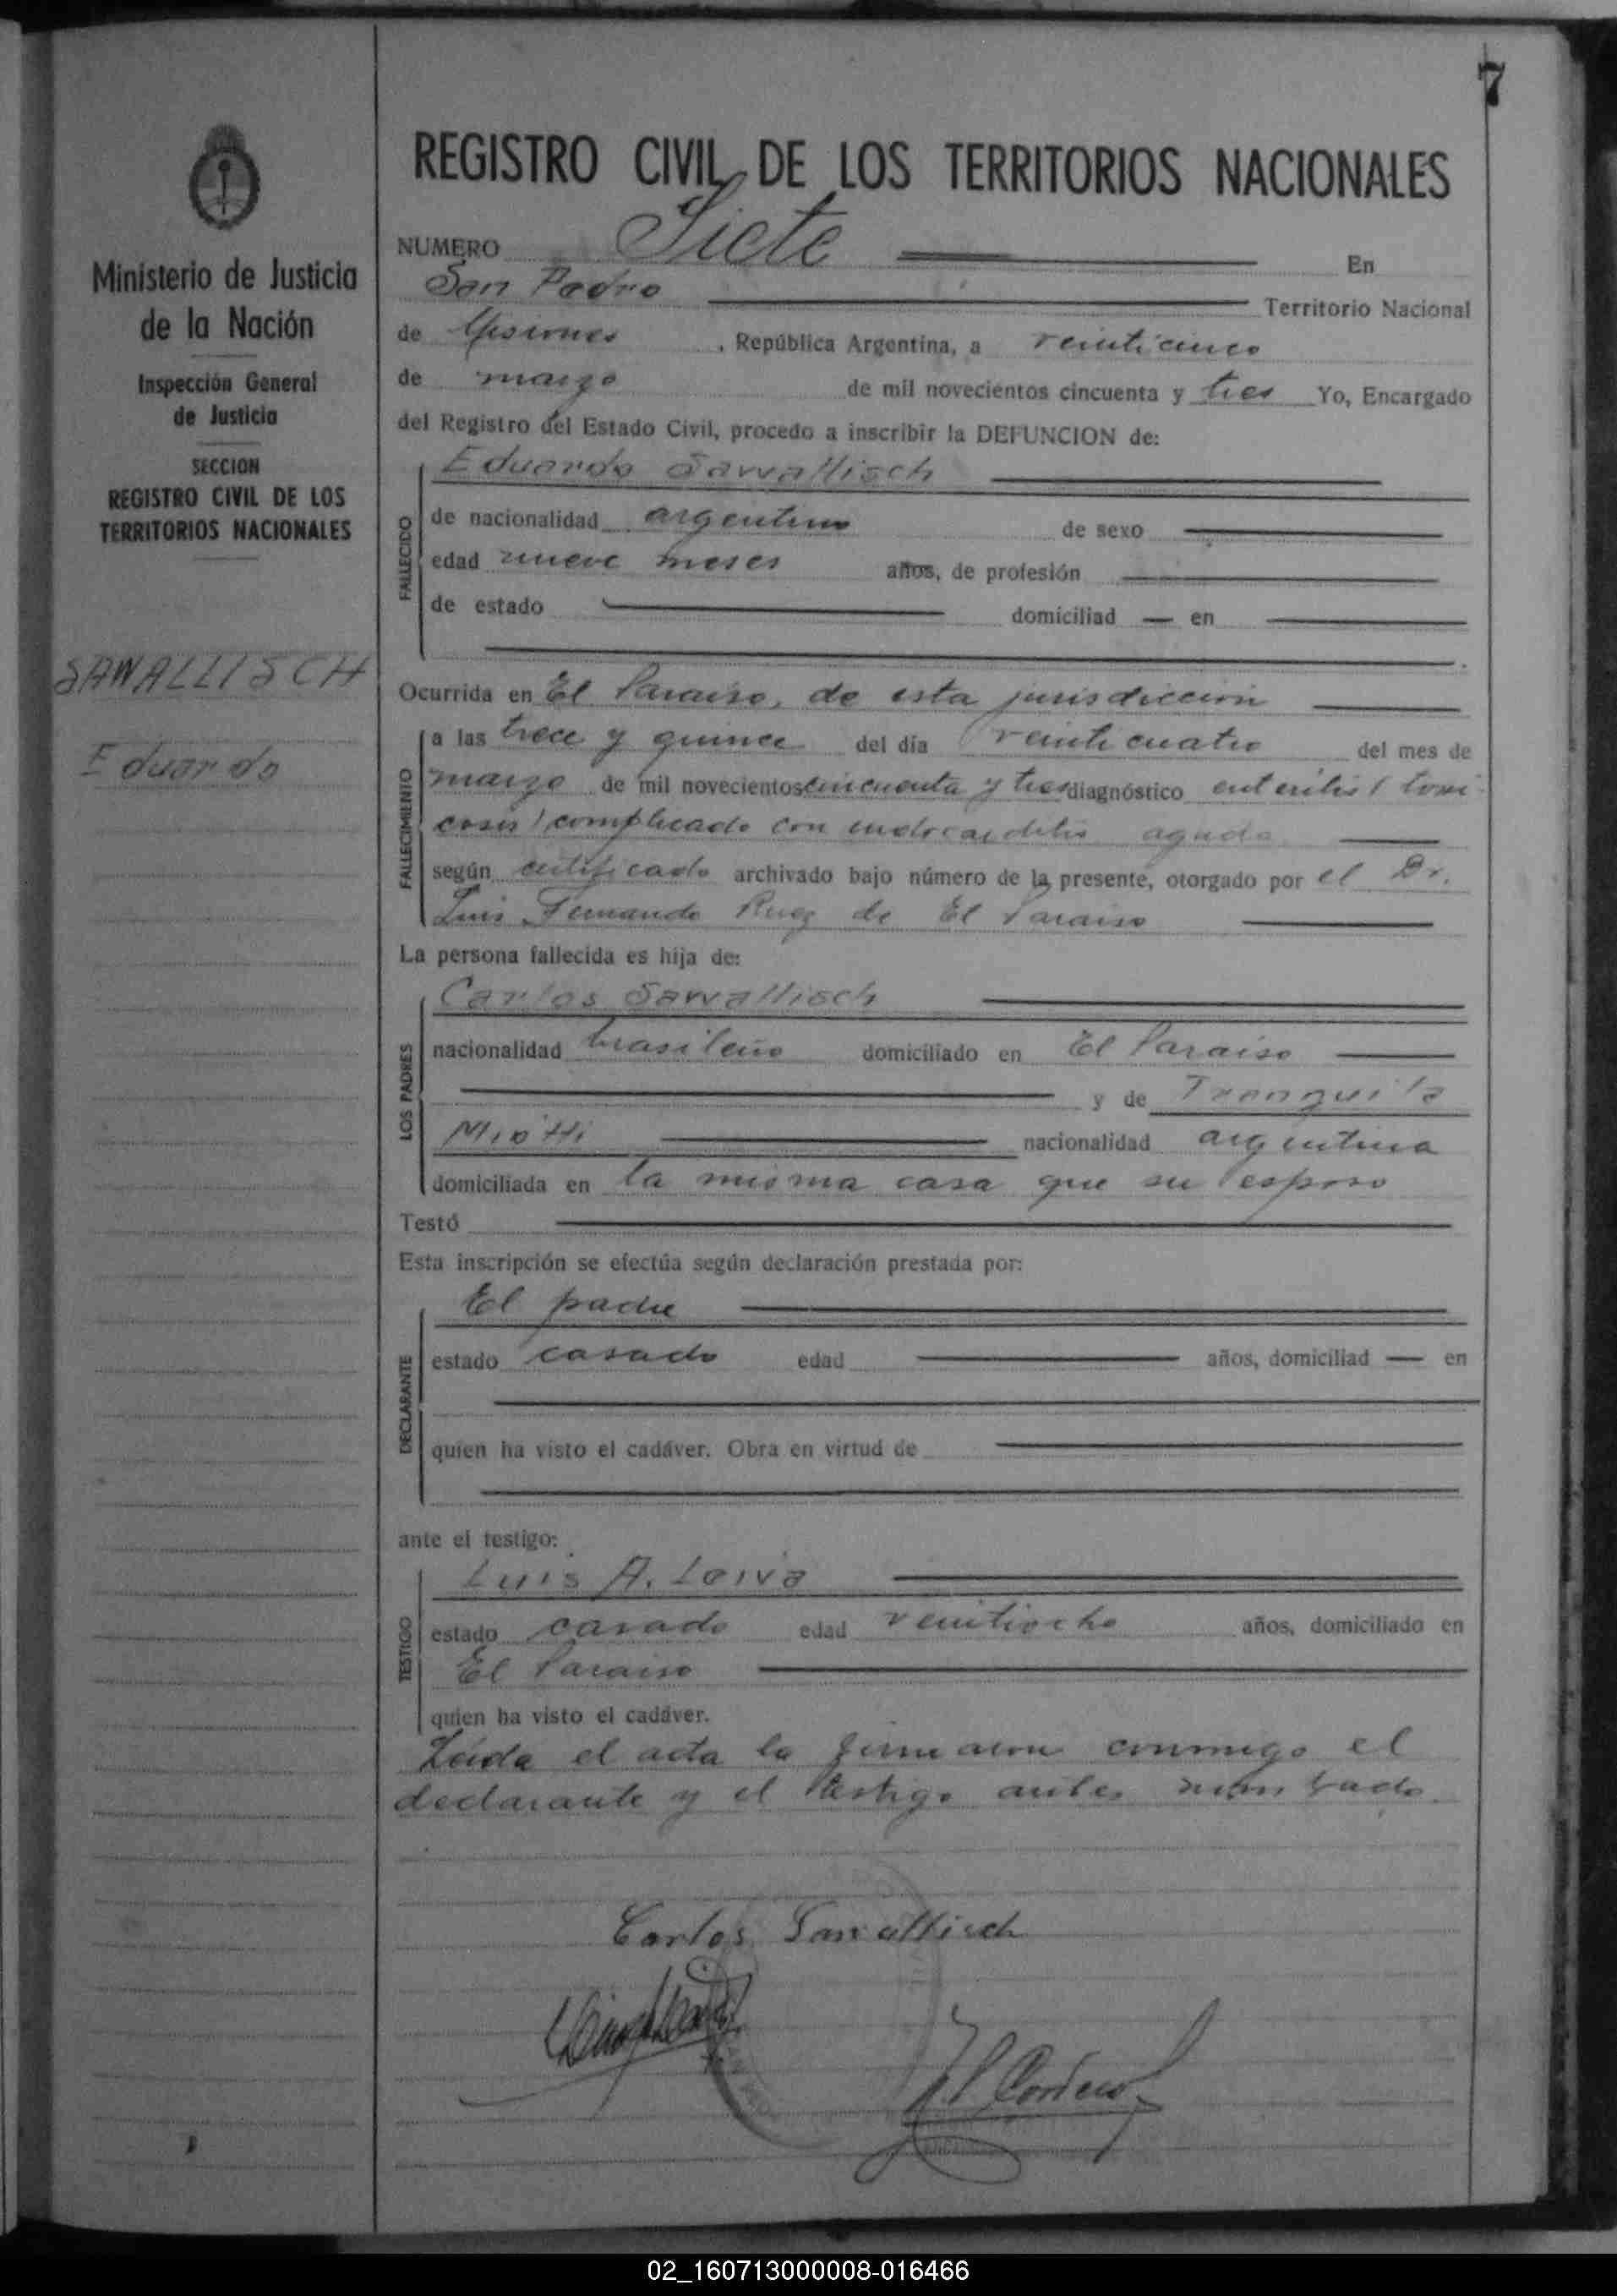 7
REGISTRO CIVIL DE LOS TERRITORIOS NACIONALES
Ministerio de Justicia
de la Nación
Inspección General
de Justicia
SECCION
REGISTRO CIVIL DE LOS
TERRITORIOS NACIONALES
SAWALLISCH
Eduardo
NUMERO Siete En
San Pedro Territorio Nacional
de Misiones, República Argentina, a veinticinco
de marzo de mil novecientos cincuenta y tres Yo, Encargado
del Registro del Estado Civil, procedo a inscribir la DEFUNCION de:
Eduardo Sawallisch
FALLECIDO
de nacionalidad argentino de sexo
edad nueve meses años, de profesión
de estado domiciliad — en
Ocurrida en El Paraiso, de esta jurisdicción
FALLECIMIENTO
a las trece y quince del día veinticuatro del mes de
marzo de mil novecientos cincuenta y tres diagnóstico enteritis (toxi-
cosis) complicado con endocarditis aguda
según certificado archivado bajo número de la presente, otorgado por el Dr.
Luis Fernando Ruez de El Paraiso
La persona fallecida es hija de:
LOS PADRES
Carlos Sawallisch
nacionalidad brasileño domiciliado en El Paraiso
y de Tranquila
Miotti nacionalidad argentina
domiciliada en la misma casa que su esposo
Testó
Esta inscripción se efectúa según declaración prestada por:
DECLARANTE
El padre
estado casado edad años, domiciliad — en
quien ha visto el cadáver. Obra en virtud de
ante el testigo:
TESTIGO
Luis A. Leiva
estado casado edad veintiocho años, domiciliado en
El Paraiso
quien ha visto el cadáver.
Leída el acta la firmaron conmigo el
declarante y el testigo antes nombrado.
Carlos Sawallisch
Cordero
02_160713000008-016466